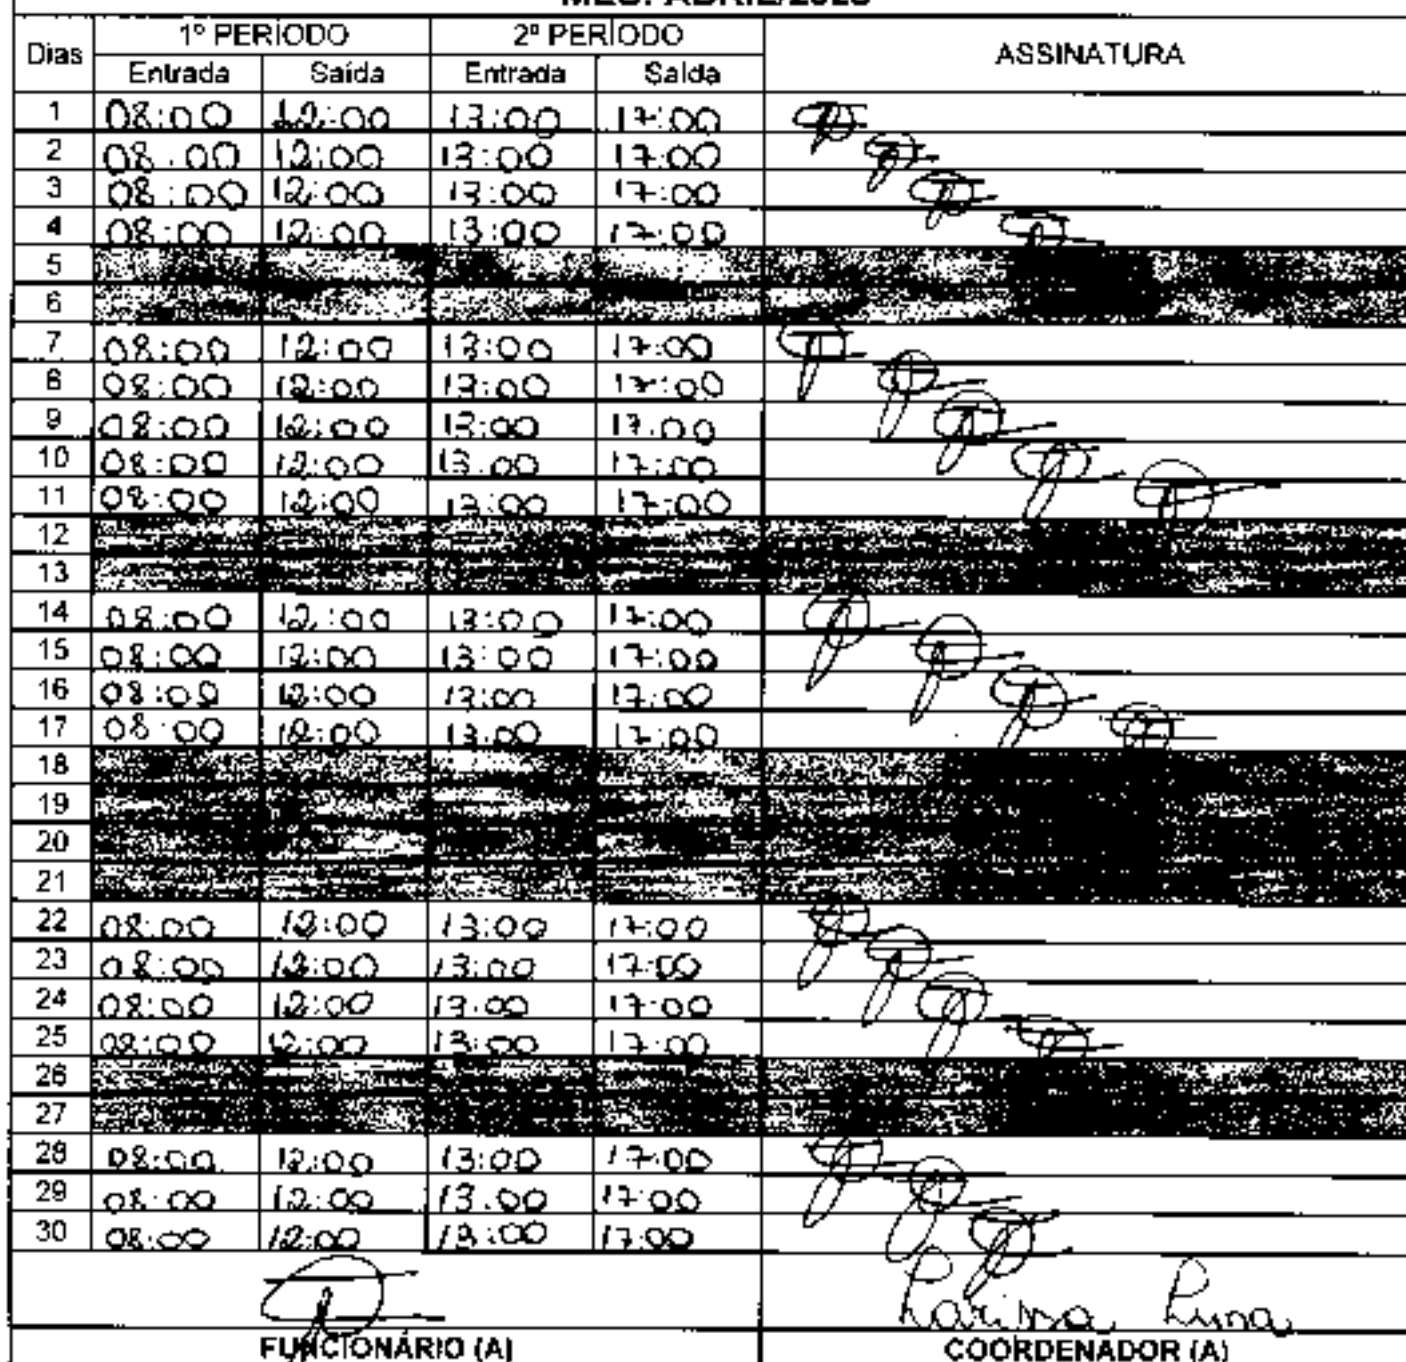 1º PERÍODO 2º PERÍODO
Dias ASSINATURA
Entrada Saída Entrada Saída
1 08:00 12:00 13:00 17:00
2 08:00 12:00 13:00 17:00
3 08:00 12:00 13:00 17:00
4 08:00 12:00 13:00 17:00
5
6
7 08:00 12:00 13:00 17:00
8 08:00 12:00 13:00 17:00
9 08:00 12:00 13:00 17:00
10 08:00 12:00 13:00 17:00
11 08:00 12:00 13:00 17:00
12
13
14 08:00 12:00 13:00 17:00
15 08:00 12:00 13:00 17:00
16 08:00 12:00 13:00 17:00
17 08:00 12:00 13:00 17:00
18
19
20
21
22 08:00 12:00 13:00 17:00
23 08:00 12:00 13:00 17:00
24 08:00 12:00 13:00 17:00
25 08:00 12:00 13:00 17:00
26
27
28 08:00 12:00 13:00 17:00
29 08:00 12:00 13:00 17:00
30 08:00 12:00 13:00 17:00
Luna
FUNCIONÁRIO (A) COORDENADOR (A)